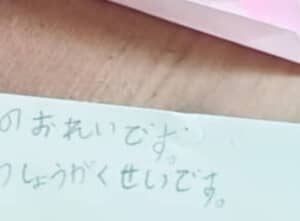 のおれいです。
しょうがくせいです。